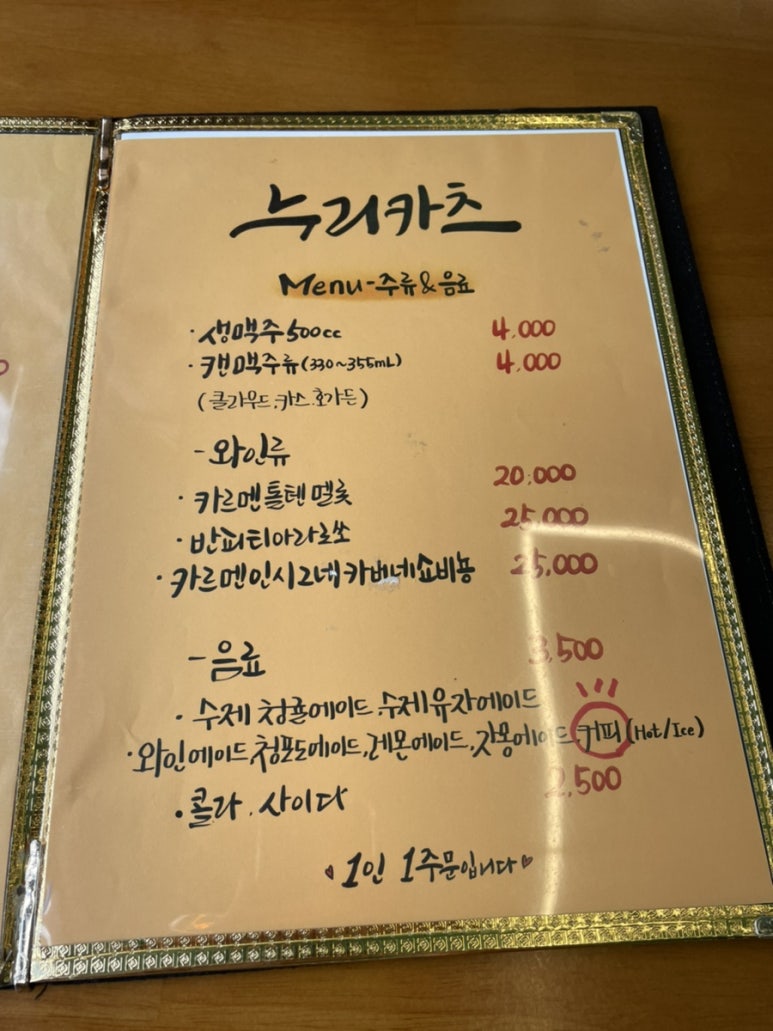 누리카츠
Menu-주류&음료
·생맥주500cc 4,000
·캔맥주류(330~355mL) 4,000
(클라우드.카스.호가든)
-와인류
·카르멘톨텐멜롯 20,000
·반피티아라로쏘 25,000
·카르멘인시그네카베네쇼비뇽 25,000
-음료 3,500
·수제청귤에이드.수제유자에이드
·와인에이드,청포도에이드,레몬에이드,자몽에이드.커피(Hot/Ice)
·콜라.사이다 2,500
♥1인 1주문입니다♥